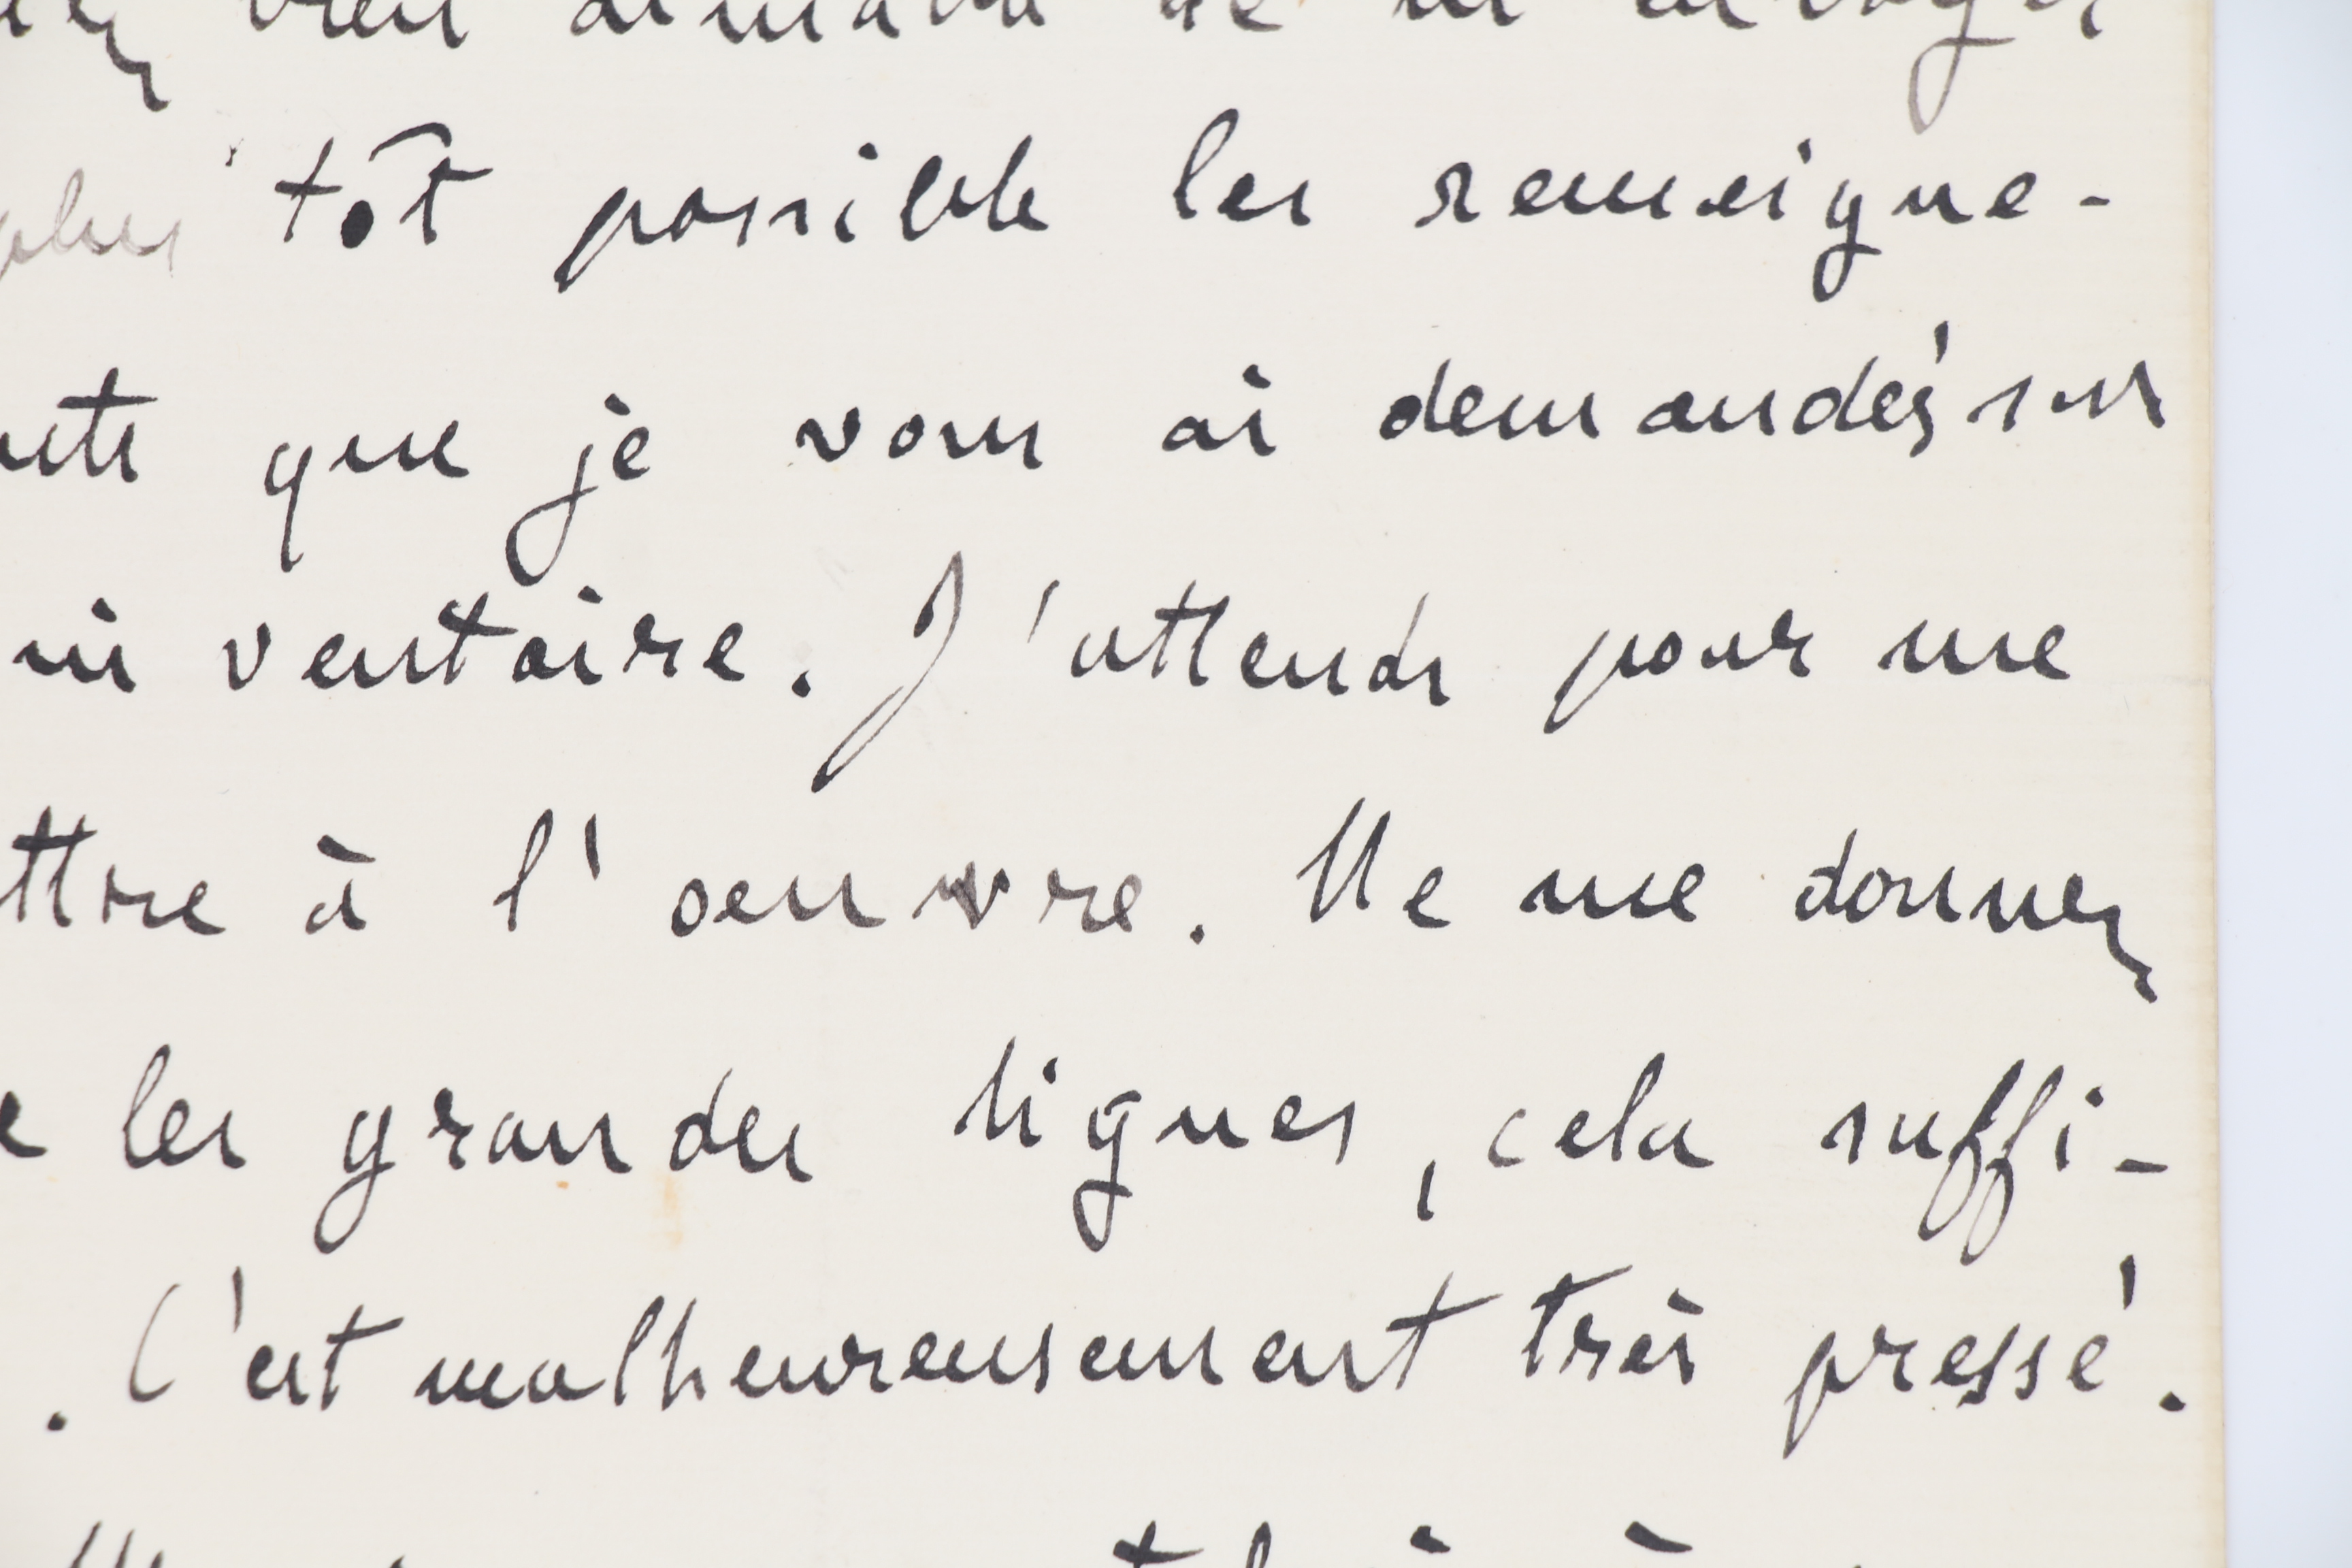 bien aimable de m'envoyer
plus tôt possible les renseigne-
ments que je vous ai demandés sur
inventaire. J'attends pour me
ttre à l'oeuvre. Ne me donnez
e les grandes lignes, cela suffi-
. C'est malheureusement très pressé.